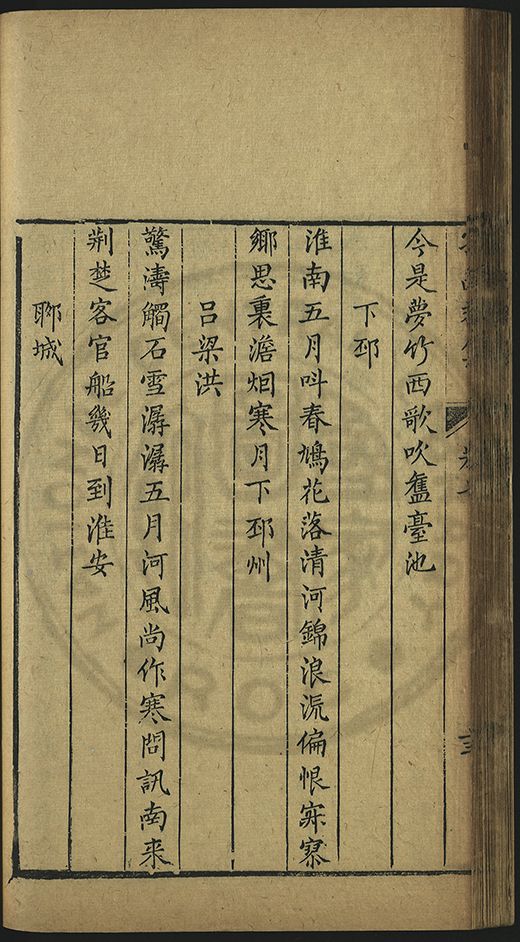 今是夢竹西歌吹舊臺池
下邳
淮南五月呌春鳩花落清河錦浪流偏恨寂寥
鄉思裏澹烟寒月下邳州
吕梁洪
驚濤觸石雪潺潺五月河風尚作寒問訊南来
荆楚客官船幾日到淮安
聊城